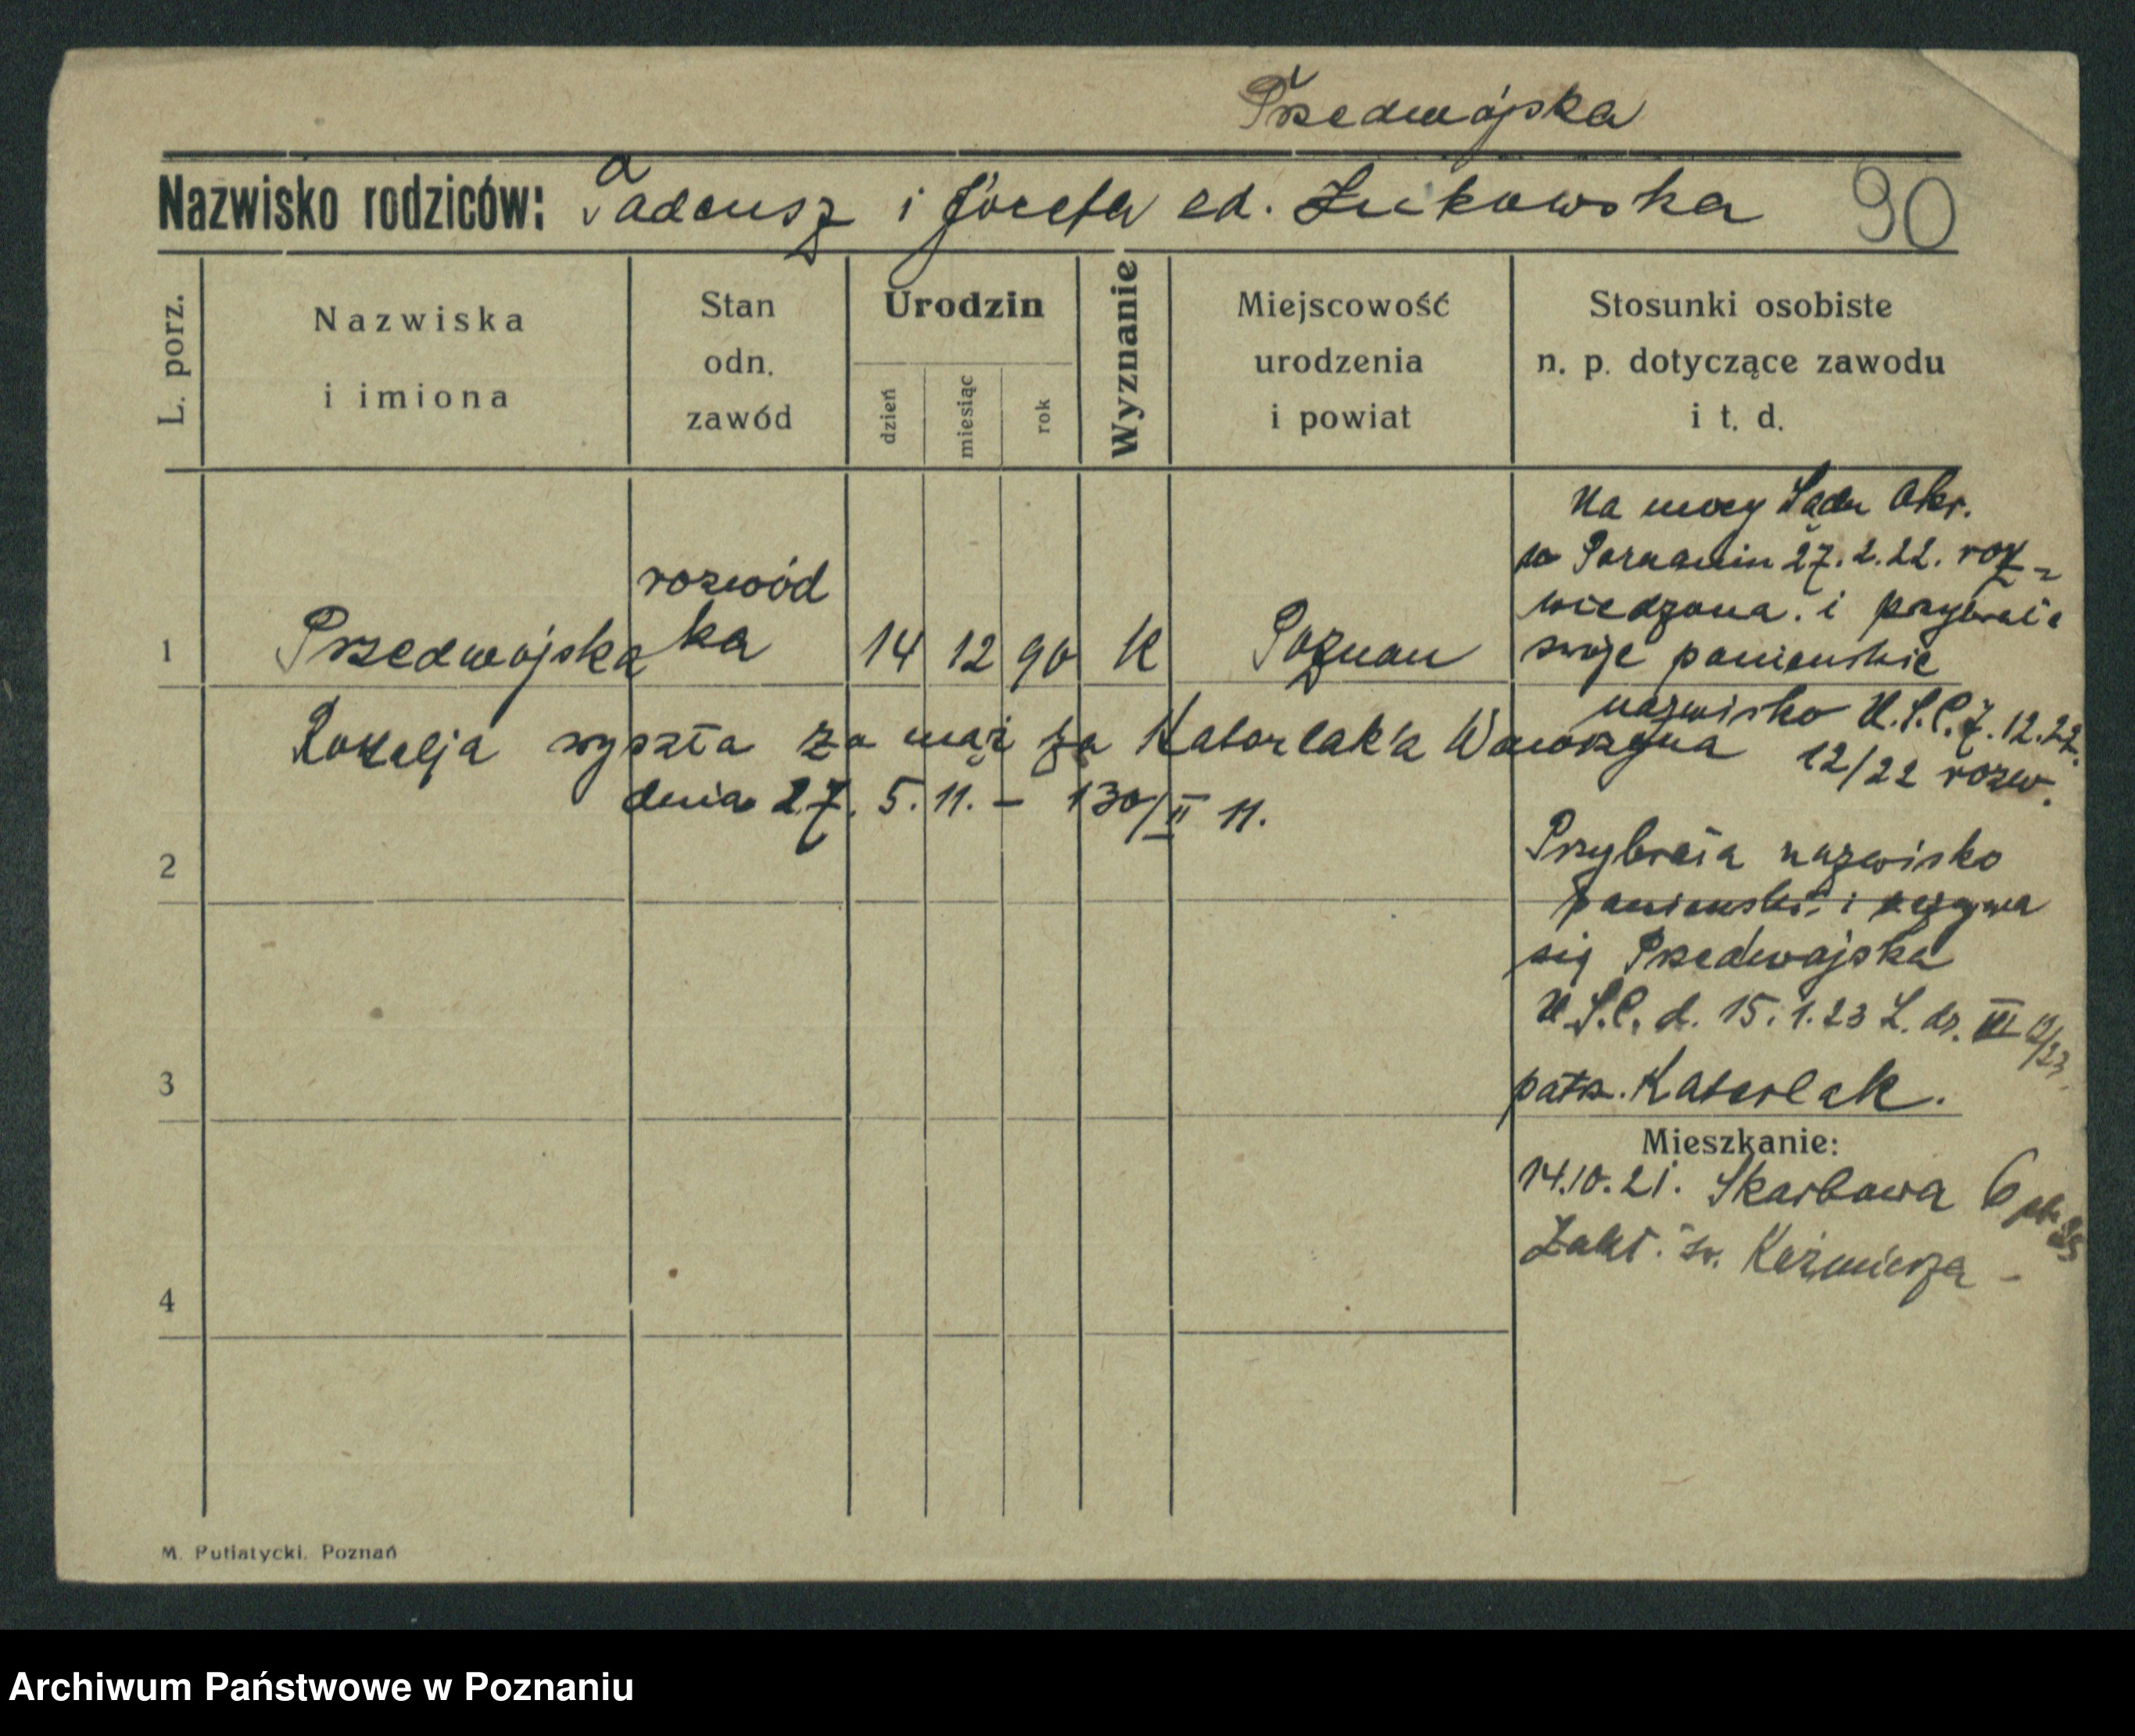 Przedwojska
Nazwisko rodziców: Tadeusz i Józefa ed. Żukowska 90
L. porz.
Nazwiska
i imiona
Stan
odn.
zawód
Urodzin
dzień
miesiąc
rok
Wyznanie
Miejscowość
urodzenia
i powiat
Stosunki osobiste
n. p. dotyczące zawodu
i t. d.
Na mocy Sądu Okr.
w Poznaniu 27.2.22. roz-
wiedzona i
swoje panieńskie
nazwisko U.S.C. 7.12.22.
12/22 rozw.
1 Przedwojska rozwód
ka 14 12 90 K Poznan
wyszła za mąż za Katorlak'a Wawrzyna
dnia 27. 5. 11. – 130/II 11.
2
Przybrała nazwisko
i nazywa
się Przedwojska
U.S.C. d. 15.1.23 L. dz. III
patrz. Katorlak.
3
Mieszkanie:
14.10.21. Skarbowa 6
Zakł. św. Kaźmierza –
4
M. Putiatycki. Poznań
Archiwum Państwowe w Poznaniu